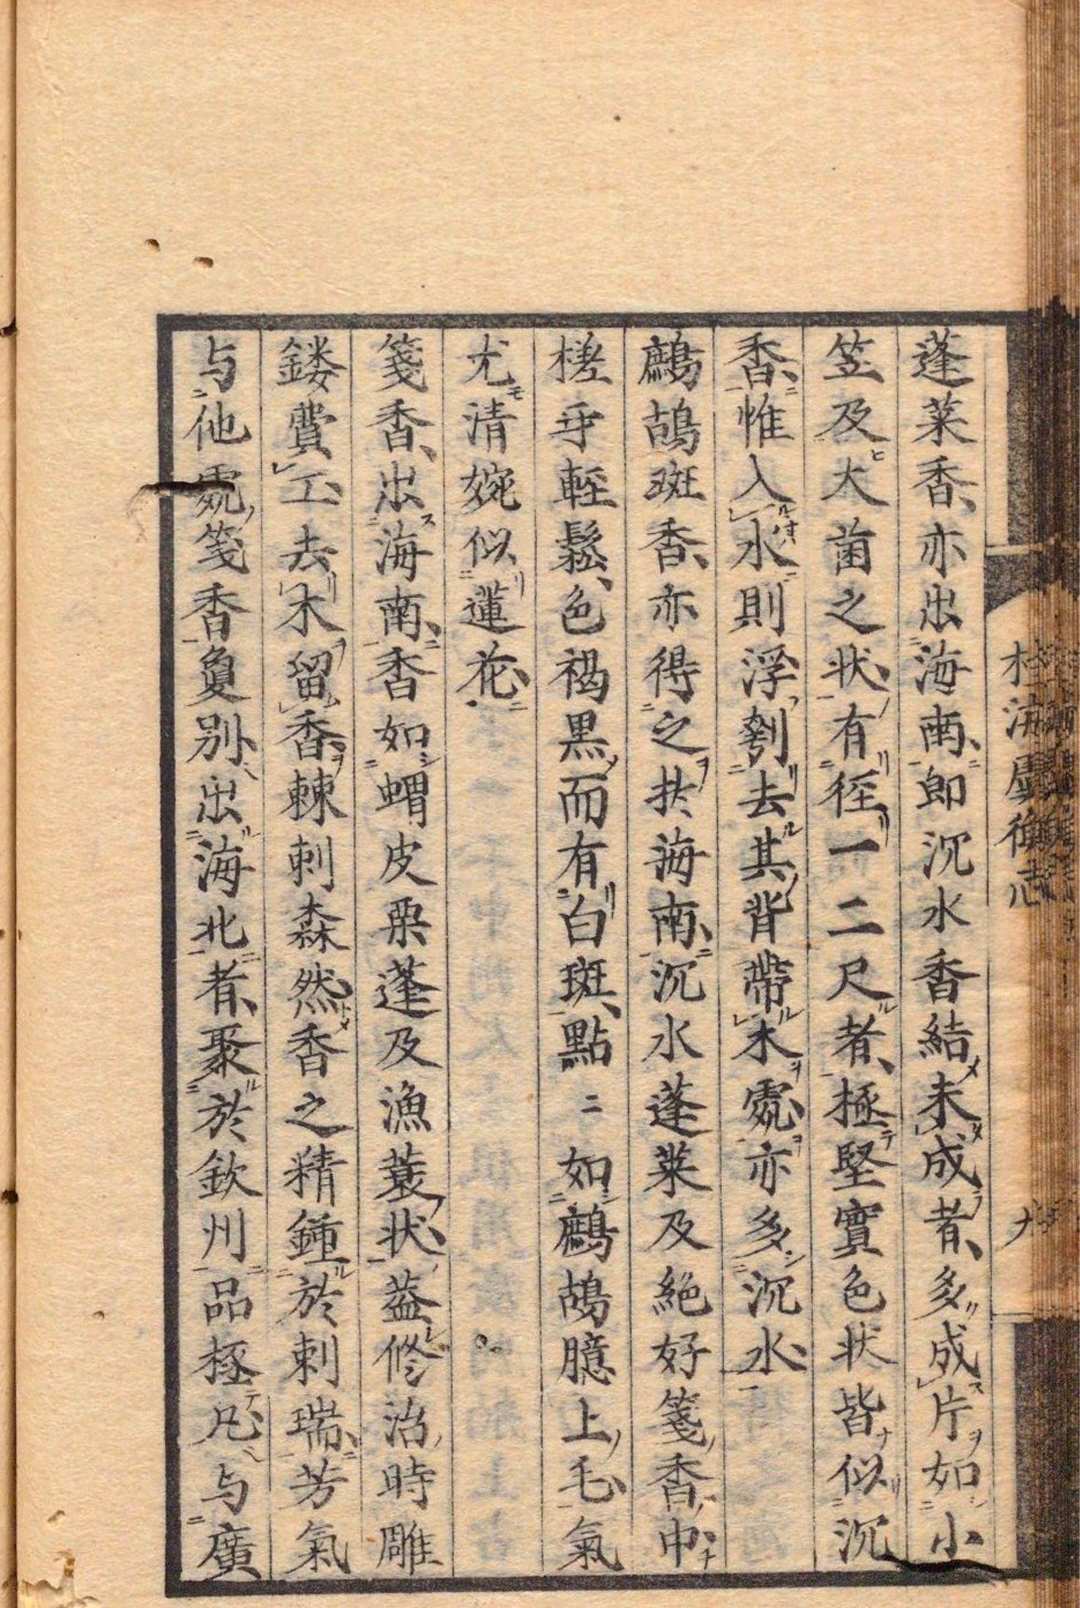 蓬莱香亦出海南即沉水香結未成者多成片如小
笠及大菌之状有徑一二尺者極堅實色状皆似沉
香惟入水則浮刳去其背帶木處亦多沉水
鷓鴣斑香亦得之於海南沉水蓬莱及絶好箋香中
槎牙輕鬆色褐黒而有白斑點々如鷓鴣臆上毛氣
尤清婉似蓮花
箋香出海南香如蝟皮栗蓬及漁蓑状蓋修治時雕
鏤費工去木留香棘刺森然香之精鍾於刺瑞芳氣
与他處箋香敻別出海北者聚於欽州品極凡与廣
桂海虞衡志